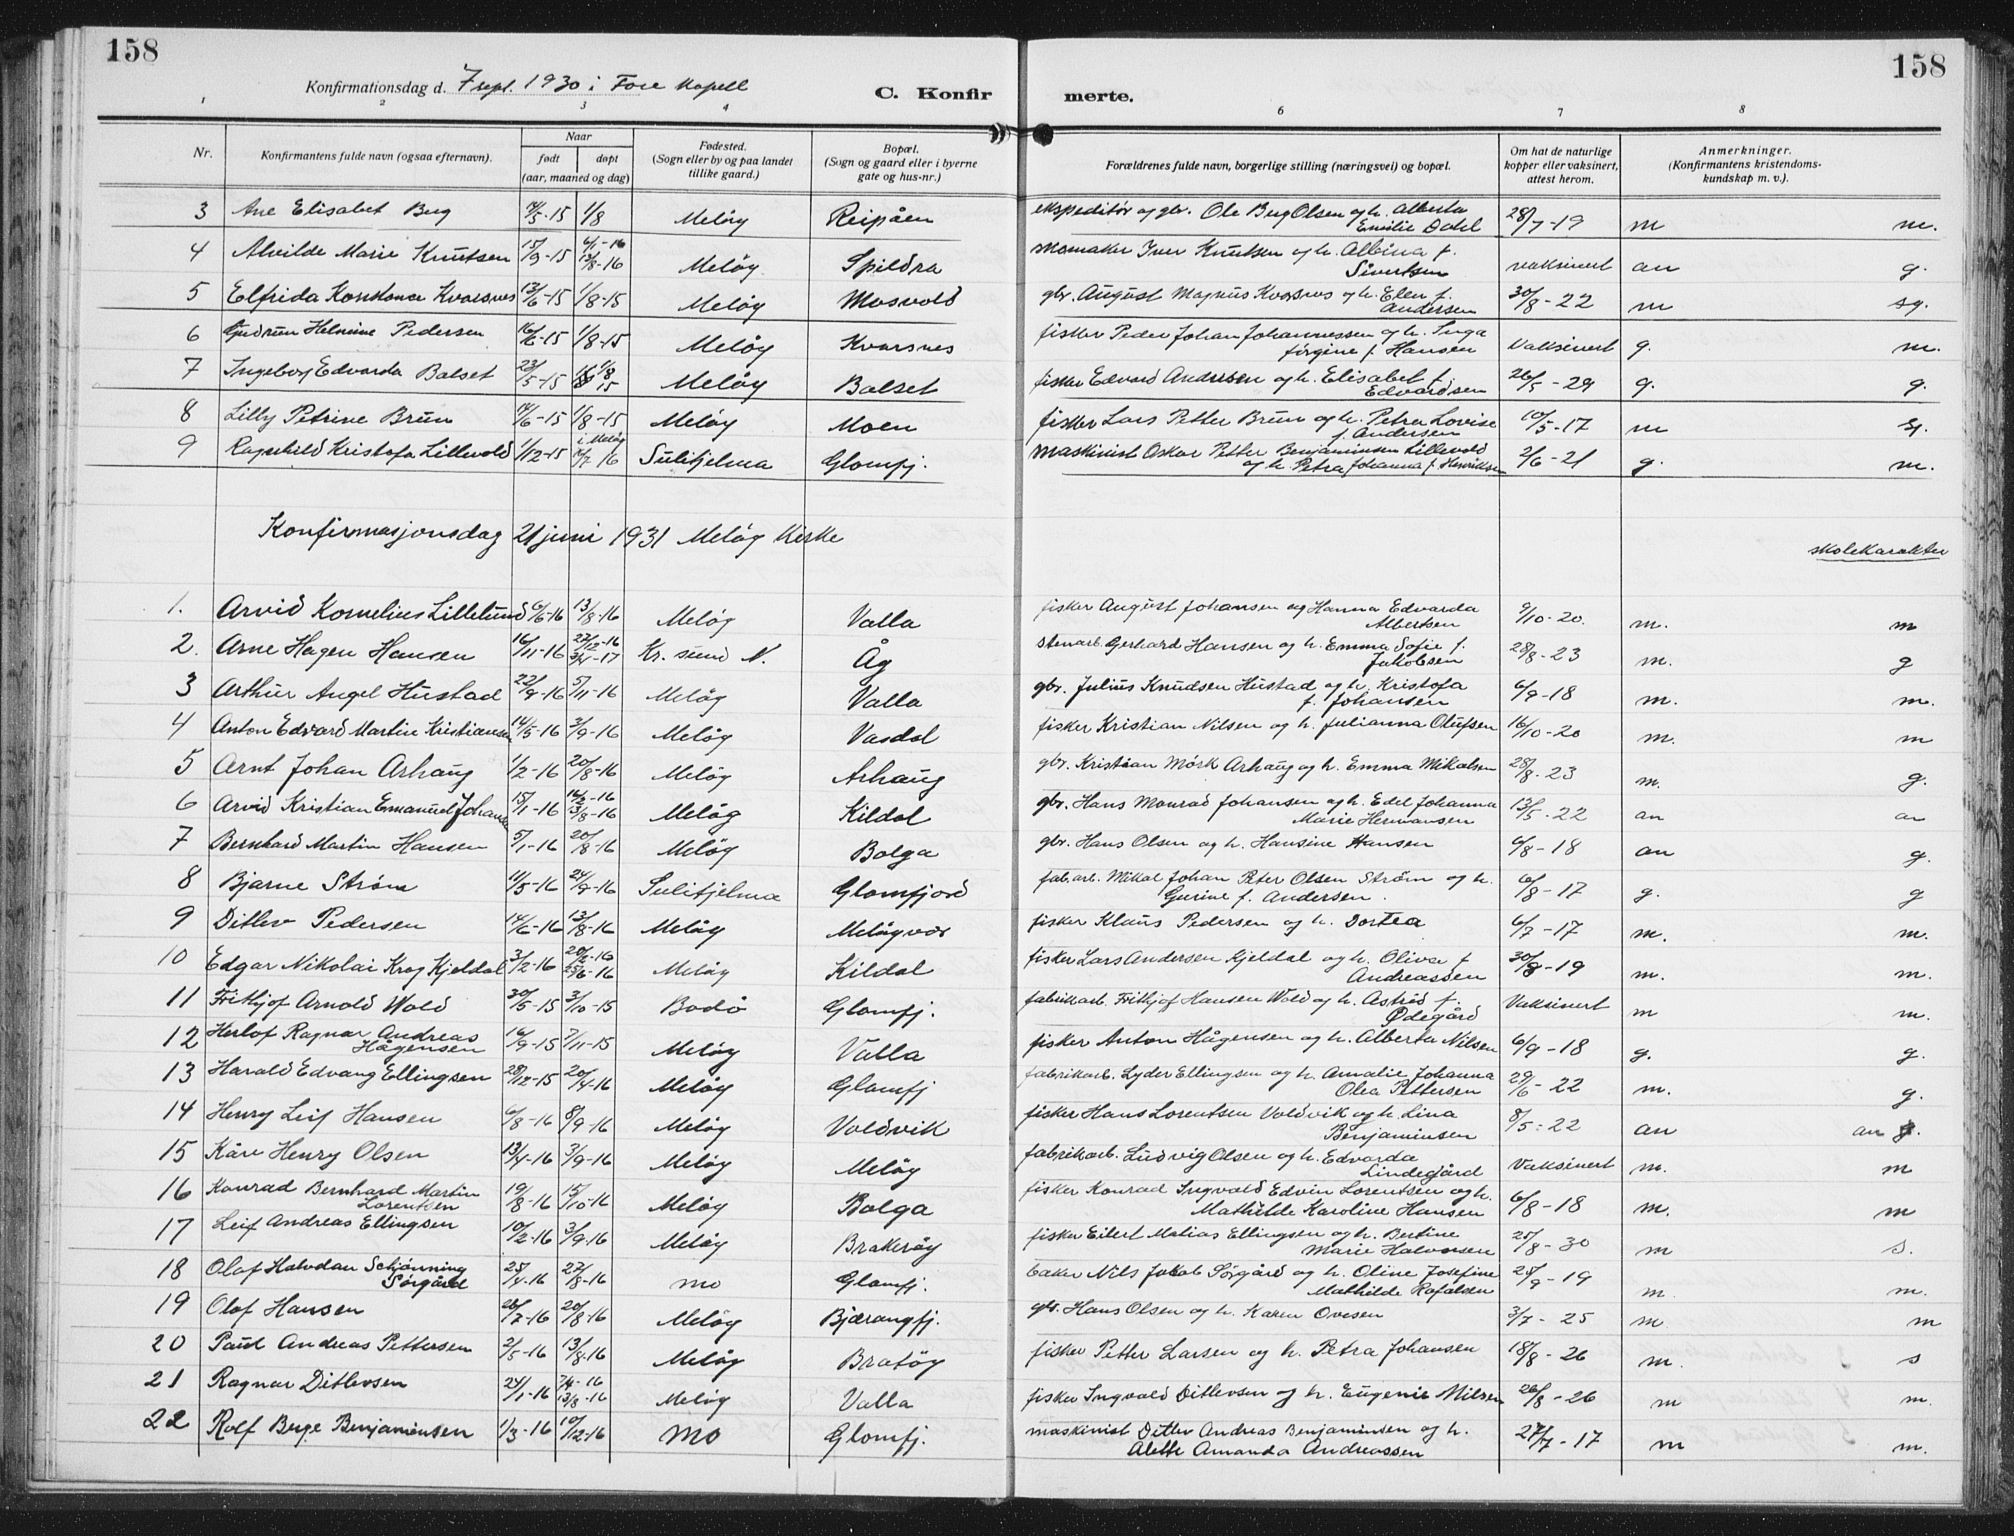 158
158
Konfirmationsdag d. 7 sept. 1930 i Fore kapell
C. Konfir
merte.
1 2 3 4 6 7 8
Nr.
Konfirmantens fulde navn (ogsaa efternavn).
Naar
født døpt
(aar, maaned og dag)
Fødested.
(Sogn eller by og paa landet
tillike gaard.)
Bopæl.
(Sogn og gaard eller i byerne
gate og hus-nr.)
Forældrenes fulde navn, borgerlige stilling (næringsvei) og bopæl.
Om hat de naturlige
kopper eller vaksinert,
attest herom.
Anmerkninger.
(Konfirmantens kristendoms-
kundskap m. v.).
3 Ane Elisabet Berg 1/8 Meløy Reipåen ekspeditør og gbr. Ole Berg Olsen og h. Alberta Emilie Dahl 28/7-19 m m.
4 Alvilde Marie Knutsen 15/9-15 6/1-16 13/8-16 Meløy Spildra skomaker Iver Knutsen og h. Albina f. Sivertsen vaksinert an g.
5 Elfrida Konstanse Kvarsnes 13/6-15 1/8-15 Meløy Mosvold gbr. August Magnus Kvarsnes og h. Elen f. Andersen 30/8-22 m sg.
6 Gudrun Helmine Pedersen 16/6-15 1/8-15 Meløy Kvarsnes fisker Peder Johan Johannessen og h. Inga Jørgine f. Hansen Vaksinert g. m.
7 Ingeborg Edvarda Balset 23/5-15 1/8 15 Meløy Balset fisker Edvard Andersen og h. Elisabet f. Edvardsen 26/5-29 g. g.
8 Lilly Petrine Brun 14/6-15 1/8-15 Meløy Moen fisker Lars Petter Brun og h. Petra Lovise f. Andersen 10/5-17 m
9 Ragnhild Kristofa Lillevold 1/12-15 i Meløy 16 Sulitjelma Glomfj. maskinist Oskar Petter Benjaminsen Lillevold og h. Petra Johanna f. Henriksen 2/6-21 g. m.
Konfirmasjonsdag 21 juni 1931 Meløy Kirke
skolekarakter
1. Arvid Kornelius Lillelund 6/6-16 13/8-16 Meløy Valla fisker August Johansen og Hanna Edvarda Albertsen 9/10-20. m. m
2. Arne Hagen Hansen 16/11-16 27/12-16 3/4-17 Kr. sund N. Åg stenarb. Gerhard Hansen og h. Emma Sofie f. Jakobsen 28/8-23 m. g
3 Arthur Angel Hustad 22/9-16 5/11-16 Meløy Valla gbr. Julius Knudsen Hustad og h. Kristofa f. Johansen 6/9-18 m. m.
4 Anton Edvard Martin Kristiansen 14/5-16 3/9-16 Meløy Vasdal fisker Kristian Nilsen og h. Julianna Olufsen 16/10-20 m. m
5 Arnt Johan Arhaug 1/2-16 20/8-16 Meløy Arhaug gbr. Kristian Mørk Arhaug og h. Emma Mikalsen 28/8-23 m. g.
6 Arvid Kristian Emanuel Johansen 15/1-16 16/2-16 13/8-16 Meløy Kildal gbr. Hans Monrad Johansen og h. Edel Johanna Marie Hermansen 13/5-22 an an
7 Bernhard Martin Hansen 5/1-16 20/8-16 Meløy Bolga gbr. Hans Olsen og h. Hansine Hansen 6/8-18 an g.
8 Bjarne Strøm 11/5-16 24/9-16 Sulitjelma Glomfjord fab.arb. Mikal Johan Peter Olsen Strøm og h. Gurine f. Andersen. 6/8-17 g. g
9 Ditlev Pedersen 14/6-16 13/8-16 Meløy Meløyvær fisker Klaus Pedersen og h. Dortea 6/7-17 m. m.
10 Edgar Nikolai Krog Kjeldal 3/2-16 20/2-16 25/6-16 Meløy Kildal fisker Lars Andersen Kjeldal og h. Oliva f. Andreassen 30/8-19 m. m.
11 Frithjof Arnold Wold 30/5-15 3/10-15 Bodø Glomfj. fabrikarb. Frithjof Hansen Wold og h. Astrid f. Ødegård Vaksinert m m.
12 Herlof Ragnar Andreas Hågensen 16/9-15 7/11-15 Meløy Valla fisker Anton Hågensen og h. Alberta Nilsen 6/9-18 g. g.
13 Harald Edvang Ellingsen 28/12-15 20/4-16 Meløy Glomfj fabrikarb. Lyder Ellingsen og h. Amalie Johanna Olea Pettersen 29/6-22 m. g.
14 Henry Leif Hansen 6/8-16 8/9-16 Meløy Voldvik fisker Hans Lorentsen Voldvik og h. Lina Benjaminsen 8/5-22 an an
15 Kåre Henry Olsen 13/4-16 3/9-16 Meløy Meløy fabrikarb. Ludvig Olsen og h. Edvarda Lindegård Vaksinert m. m
16 Konrad Bernhard Martin Lorentsen 19/8-16 15/10-16 Meløy Bolga fisker Konrad Ingvald Edvin Lorentsen og h. Mathilde Karoline Hansen 6/8-18 m. m
17 Leif Andreas Ellingsen 10/2-16 3/9-16 Meløy Brakerøy fisker Eilert Matias Ellingsen og h. Bertine Marie Halvorsen 25/8-30 m s.
18 Olaf Halvdan Schjønning Sørgård 25/4-16 27/8-16 Mo Glomfj. baker Nils Jakob Sørgård og h. Oline Josefine Mathilde Rafalsen 25/9-19 m. m.
19 Olaf Hansen 26/7-16 20/8-16 Meløy Bjærangfj. gbr. Hans Olsen og h. Karen Ovesen 3/7-25 m m
20 Paul Andreas Pettersen 2/5-16 13/8-16 Meløy Bratøy fisker Petter Larsen og h. Petra Johansen 18/8-26 m. s
21 Ragnar Ditlevsen 24/1-16 7/4-16 13/8-16 Meløy Valla fisker Ingvald Ditlevsen og h. Eugenie Nilsen 26/8-26 m m.
22 Rolf Berge Benjaminsen 1/3-16 10/12-16 Mo Glomfj. maskinist Ditlev Andreas Benjaminsen og h. Alette Amanda Andreassen 27/7-17 m m.